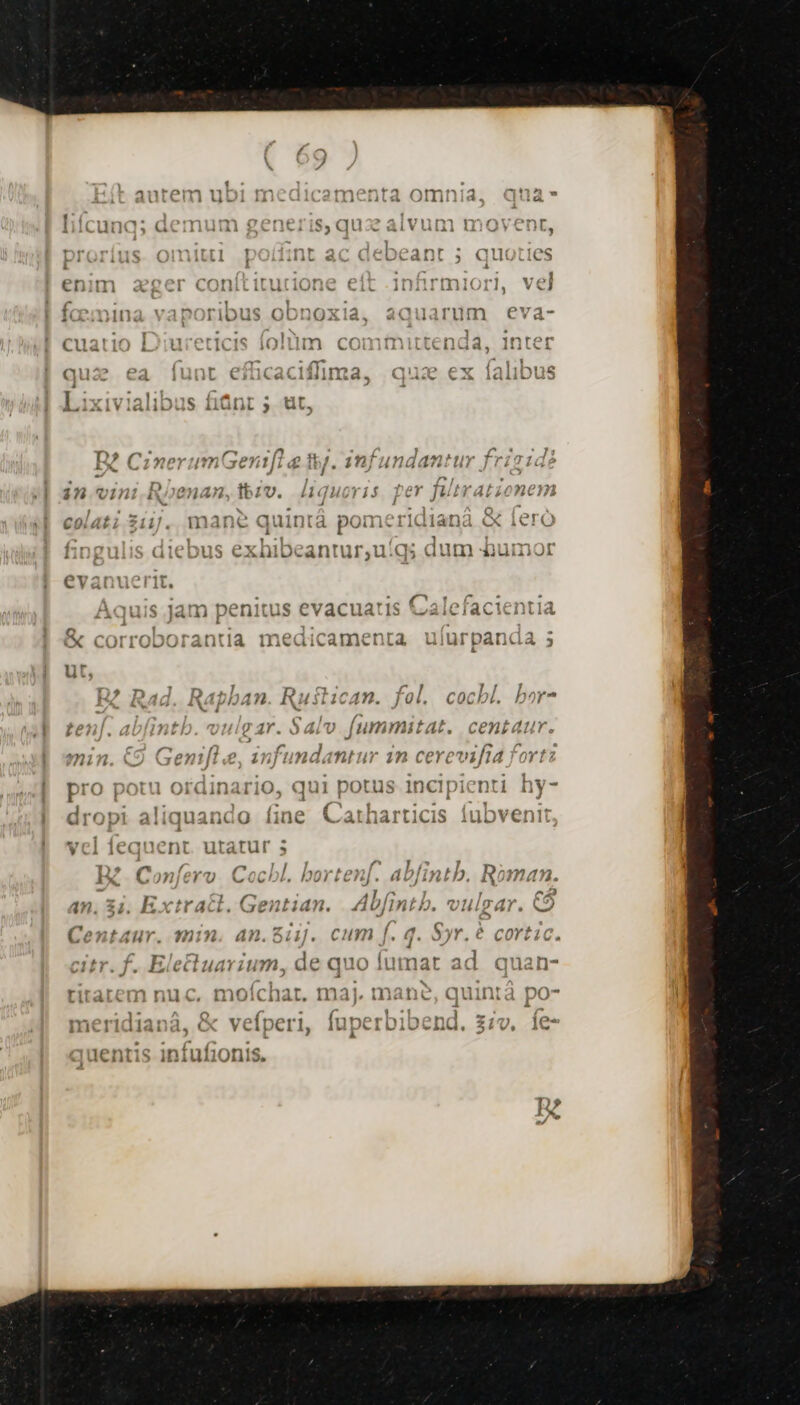 ( 69 )
Eſt autem ubi medicamenta omnia, qua-
liſcunq; demum generis, quæ alvum movent,
prorſus omitti poſſint ac debeant ; quoties
enim æger conſtitutione eſt infirmiori, vel
fœmina vaporibus obnoxia, aquarum eva-
cuatio Diureticis ſolùm committenda, inter
quæ ea ſunt efficaciſſima, quæ ex ſalibus
Lixivialibus fiunt ; ut,
℞ Cinerum Geniſtæ ℔j. infundantur frigidè
in vini Rhenan, ℔iv. liquoris per filtrationem
colati ℥iij. manè quintâ pomeridianâ & ſerò
ſingulis diebus exhibeantur, uſq; dum humor
evanuerit.
Aquis jam penitus evacuatis Calefacientia
& corroborantia medicamenta uſurpanda ;
ut,
℞ Rad. Raphan. Ruſtican. fol. cochl. hor-
tenſ. abſinth. vulgar. Salv. ſummitat. centaur.
min. & Geniſtæ, infundantur in cereviſia forti
pro potu ordinario, qui potus incipienti hy-
dropi aliquando ſine Catharticis ſubvenit,
vel ſequent. utatur ;
℞ Conſerv. Cochl. hortenſ. abſinth. Roman.
an. ℥i. Extract. Gentian. Abſinth. vulgar. &
Centaur. min. an. ʒiij. cum ſ. q. Syr. è cortic.
citr. f. Electuarium, de quo ſumat ad quan-
titatem nuc. moſchat. maj. manè, quintâ po-
meridianâ, & veſperi, ſuperbibend. ℥iv. ſe-
quentis infuſionis.
℞